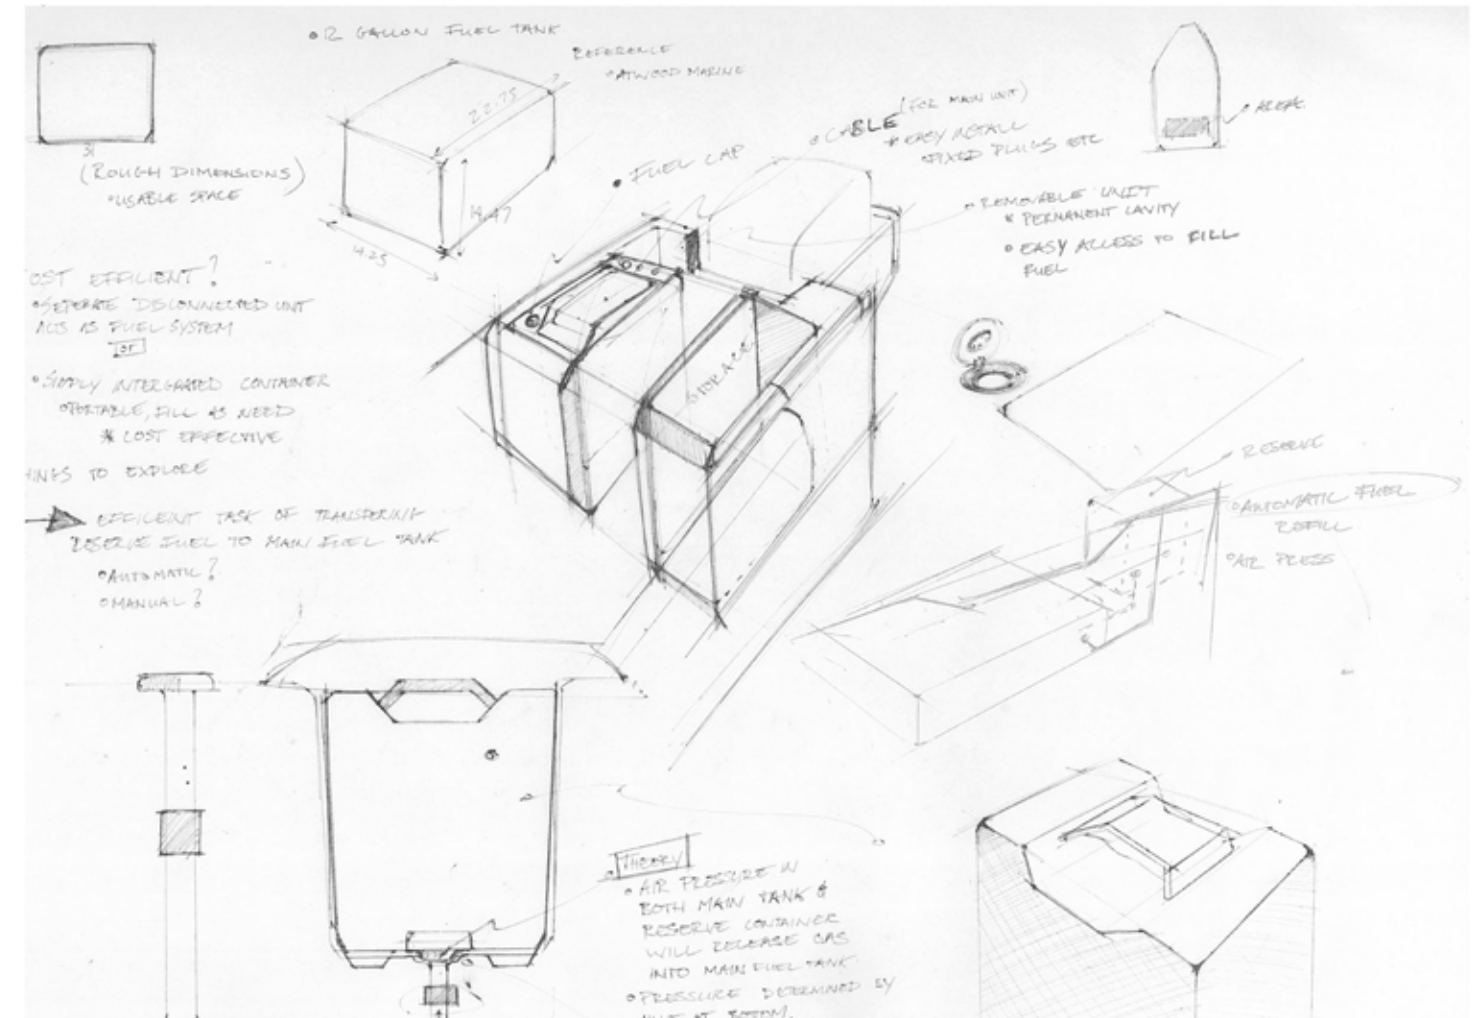 12 GALLON FUEL TANK
REFERENCE
ATWOOD MARINE
22.75
14.47
14.25
31
(ROUGH DIMENSIONS)
USABLE SPACE
FUEL CAP
CABLE (FOR MAIN UNIT)
* EASY INSTALL
FIXED PLUGS ETC
AREA
REMOVABLE UNIT
* PERMANENT CAVITY
EASY ACCESS TO FILL
FUEL
STORAGE
OST EFFICIENT?
SEPERATE DISCONNECTED UNIT
ACTS AS FUEL SYSTEM
OR
SIMPLY INTERGRATED CONTAINER
PORTABLE, FILL AS NEED
* COST EFFECTIVE
HINGS TO EXPLORE
EFFICEINT TASK OF TRANSFERING
RESERVE FUEL TO MAIN FUEL TANK
AUTOMATIC?
MANUAL?
RESERVE
AUTOMATIC FUEL
REFILL
AIR PRESS
THEORY
AIR PRESSURE IN
BOTH MAIN TANK &
RESERVE CONTAINER
WILL RELEASE GAS
INTO MAIN FUEL TANK.
PRESSURE DETERMINED BY
AT BOTTOM.